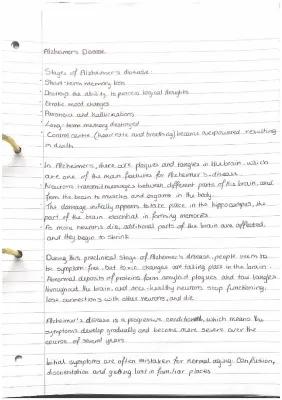 Alzheimer's Disease
Stages of Alzheimer's disease:
· Short-term memory loss
· Destroys the ability to process logical thoughts
· Erratic mood changes
· Paranoia and hallucinations
· Long-term memory destroyed
· Control centre (heart rate and breathing) became overpowered resulting
in death.
· In Alzheimer's, there are plaques and tangles in the brain which
are one of the main features for Alzheimer's disease.
· Neurons transmit messages between different parts of the brain, and
from the brain to muscles and organs in the body.
· The damage initially appears to take place in the hippocampus, the
part of the brain essential in forming memories.
· As more neurons die, additional parts of the brain are affected,
and they begin to shrink
During this preclinical stage of Alzheimer's disease, people seem to
be symptom-free, but toxic changes are taking place in the brain.
Abnormal deposits of proteins form amyloid plaques and tau tangles
throughout the brain, and once-healthy neurons stop functioning,
lose connections with other neurons, and die.
Alzheimer's disease is a progressive condition, which means the
symptoms develop gradually and become more severe over the
course of several years.
Initial symptoms are often mistaken for normal aging. Confusion,
disorientation and getting lost in familiar places.